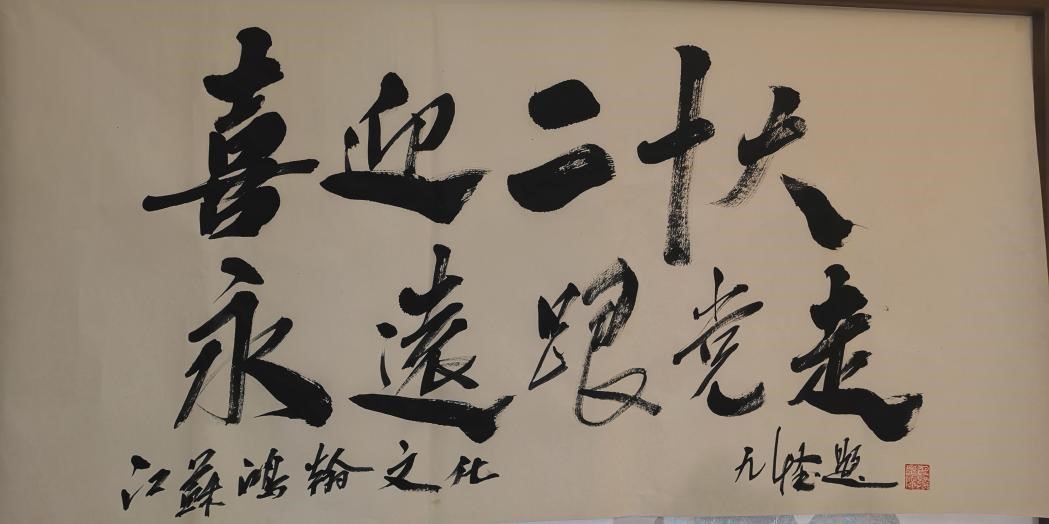 喜迎二十大
永遠跟党走
江蘇鴻翰文化
題